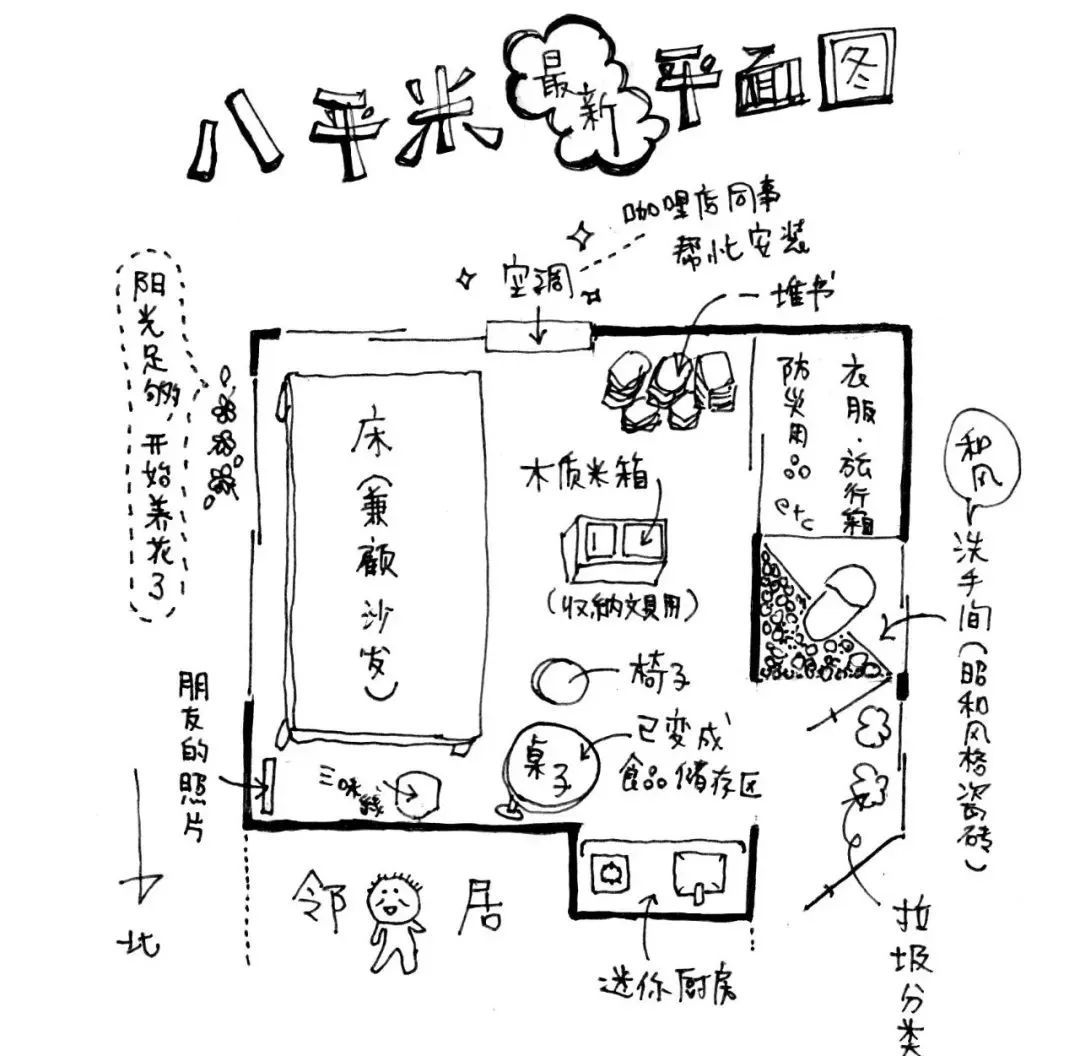 八平米最新平面图
咖喱店同事
帮忙安装
空调
一堆书
阳光足够,开始养花了
床(兼顾沙发)
木质米箱
(收纳文具用)
衣服·旅行箱
防灾用品
etc
和风
洗手间(昭和风格瓷砖)
椅子
桌子
已变成
食品储存区
朋友的照片
三味线
北
邻居
迷你厨房
垃圾分类